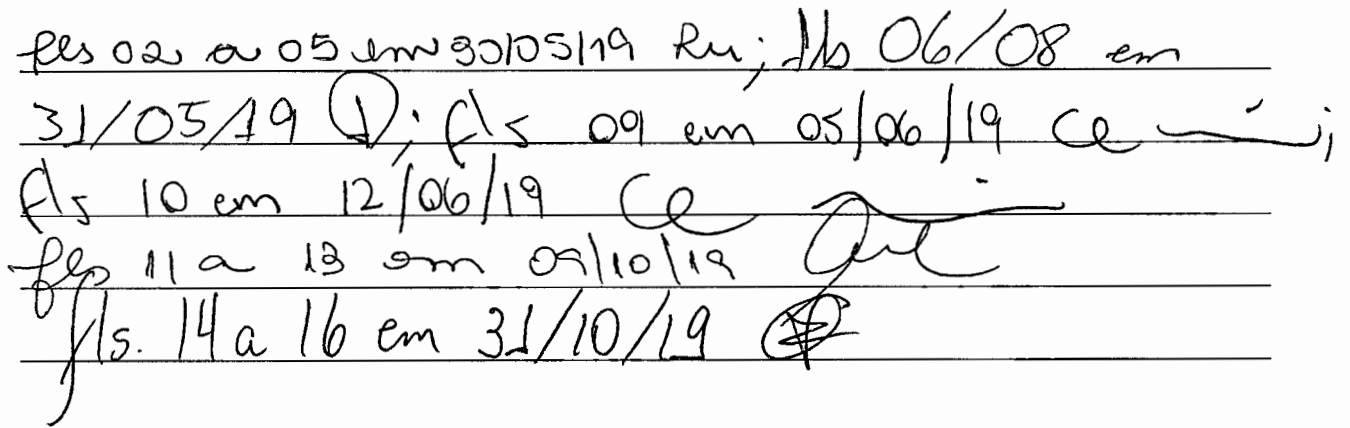 fls 02 a 05 em 30/05/19 Ru; fls 06/08 em
31/05/19 ; fls 09 em 05/06/19 Ce ;
fls 10 em 12/06/19 Ce
fls 11 a 13 em 09/10/19
fls. 14 a 16 em 31/10/19